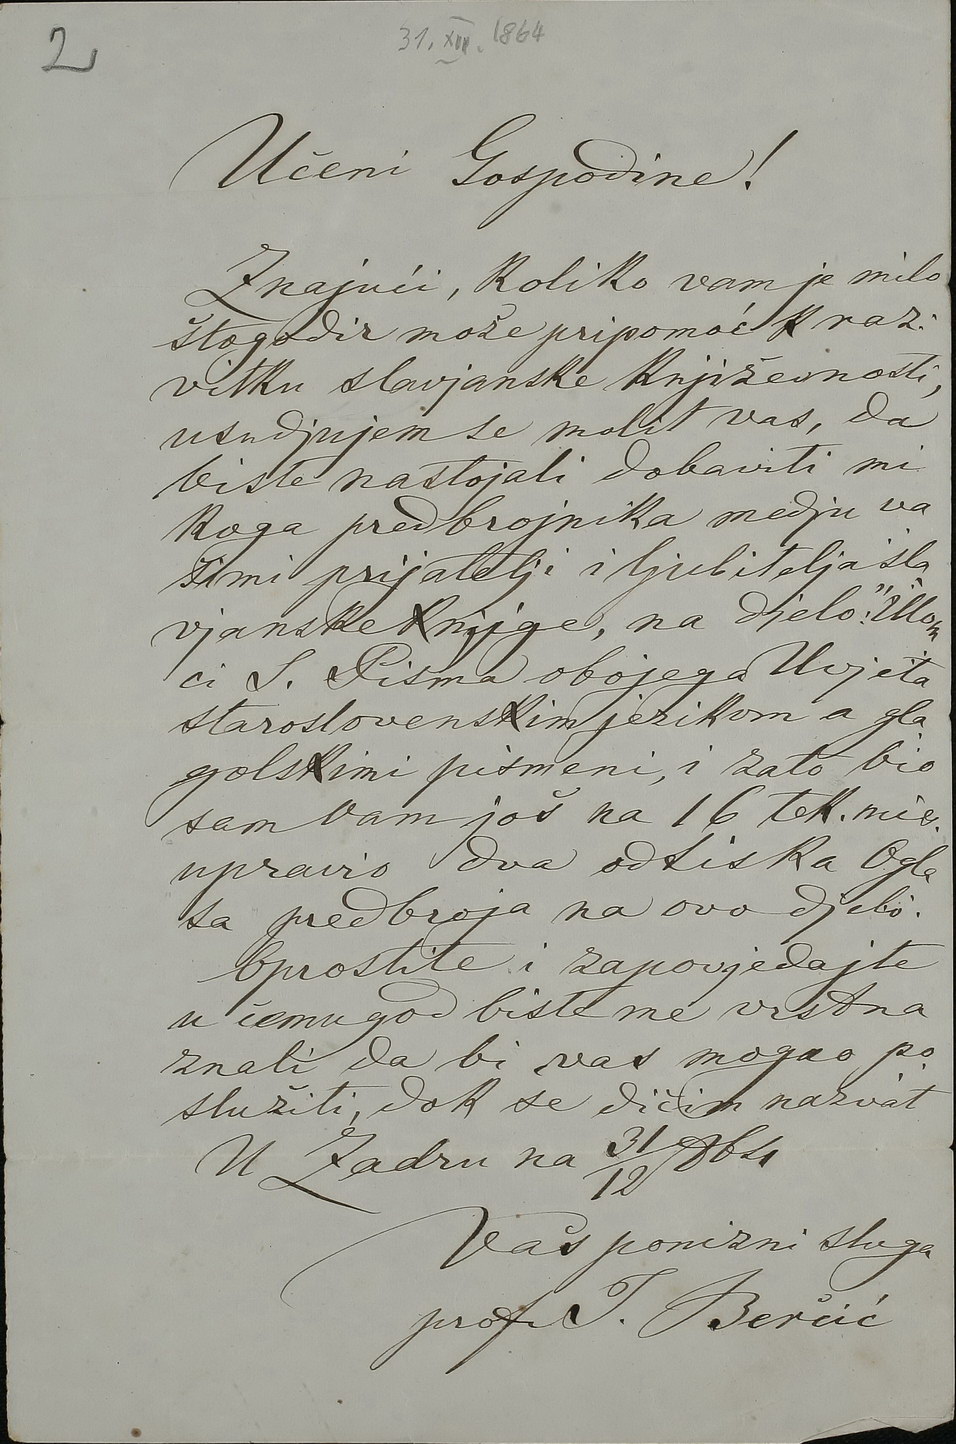 2
31. XII. 1864
Učeni Gospodine!
Znajući, koliko vam je milo
štogodir može pripomoć k raz-
vitku slavjanske književnosti,
usudjujem se molit vas, da
biste nastojali dobaviti mi
koga predbrojnika medju va
šimi prijatelji i ljubitelja sla
vjanske knjige, na djelo: "Ulom
ci S. Pisma obojega Uvjeta
staroslovenskim jezikom a gla
golskimi pismeni, i zato bio
sam vam još na 16 tek. mie.
upravio dva odtiska Ogla
sa predbroja na ovo djelo.
Oprostite i zapovjedajte
u čemugod biste me vrstna
znali da bi vas mogao po
služiti, dok se dičim nazvat
U Zadru na 31/12 864
Vaš ponizni sluga
prof. I. Berčić